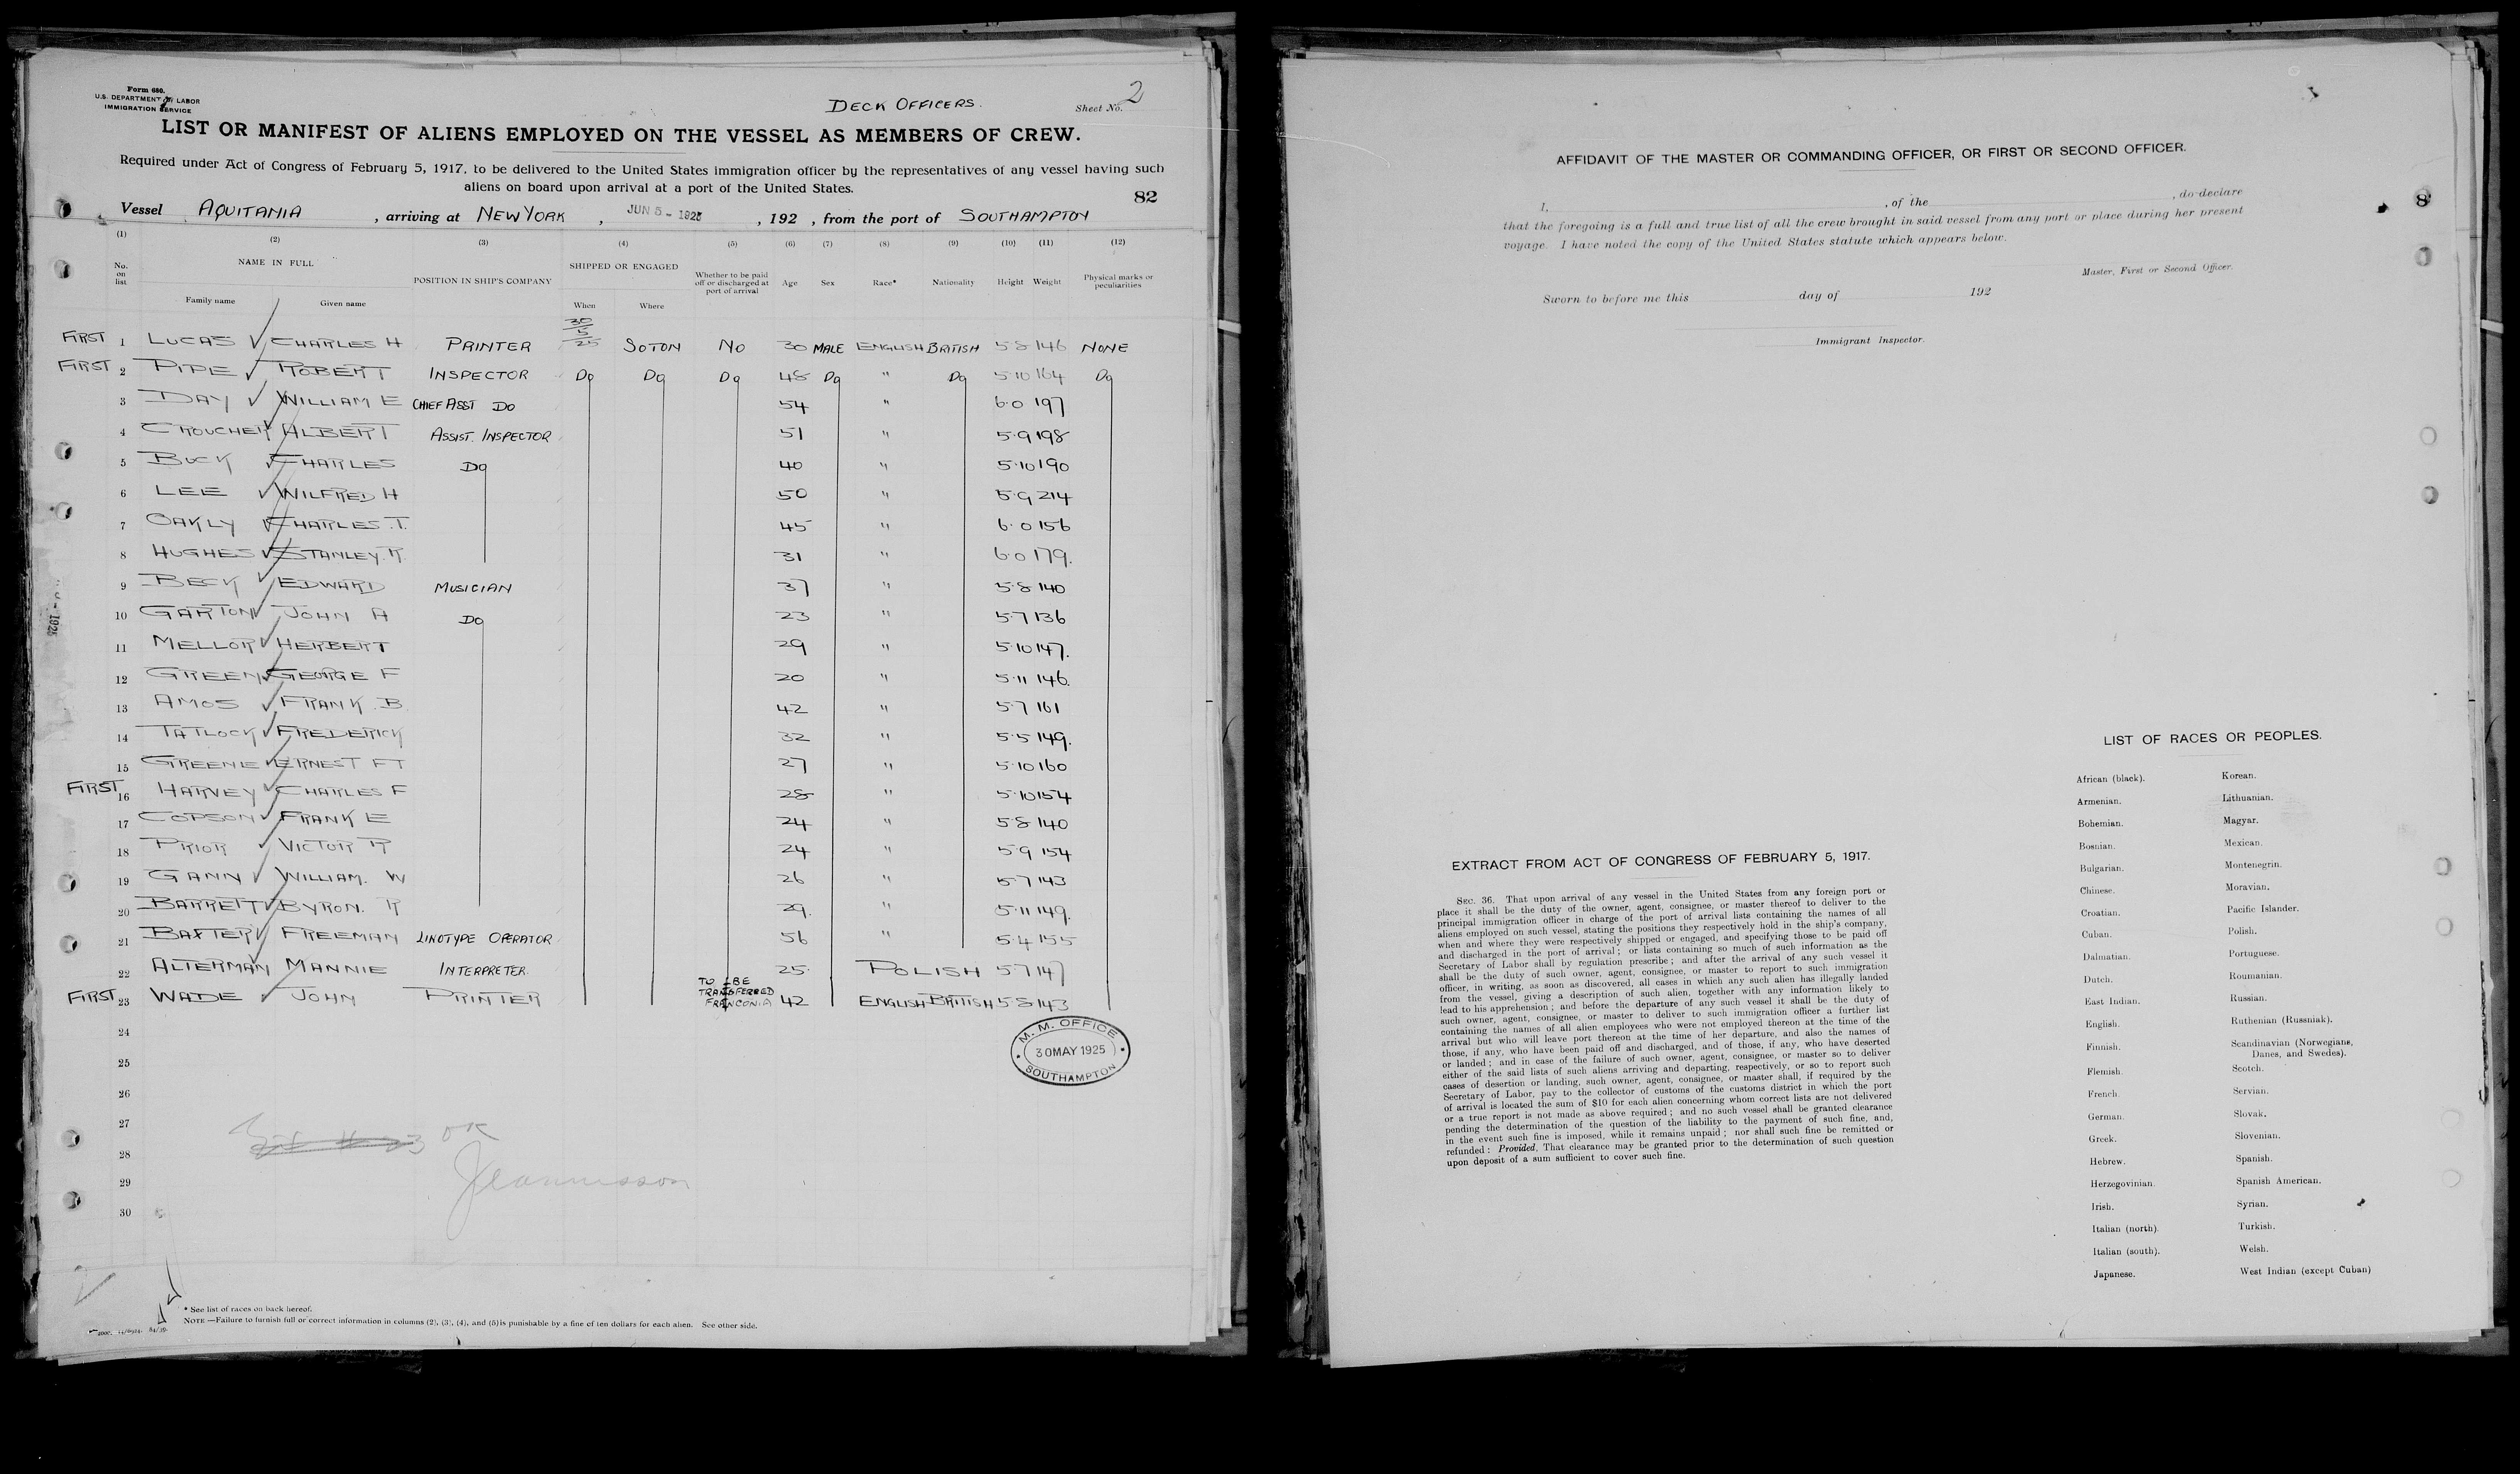 Form 680.
U.S. DEPARTMENT OF LABOR
IMMIGRATION SERVICE
DECK OFFICERS.
Sheet No. 2
LIST OR MANIFEST OF ALIENS EMPLOYED ON THE VESSEL AS MEMBERS OF CREW.
Required under Act of Congress of February 5, 1917, to be delivered to the United States immigration officer by the representatives of any vessel having such
aliens on board upon arrival at a port of the United States.
82
Vessel AQUITANIA , arriving at NEW YORK , JUN 5 - 1925 , 192 , from the port of SOUTHAMPTON
(1) (2) (3) (4) (5) (6) (7) (8) (9) (10) (11) (12)
No. on list NAME IN FULL Family name Given name POSITION IN SHIP'S COMPANY SHIPPED OR ENGAGED When Where Whether to be paid off or discharged at port of arrival Age Sex Race* Nationality Height Weight Physical marks or peculiarities
FIRST 1 LUCAS CHARLES H PRINTER 30/5/25 SOTON NO 30 MALE ENGLISH BRITISH 5 8 146 NONE
FIRST 2 PIPE ROBERT INSPECTOR DO DO DO 48 DO " DO 5 10 164 DO
3 DAY WILLIAM E CHIEF ASST DO 54 " 6.0 197
4 CROUCHER ALBERT ASSIST. INSPECTOR 51 " 5.9 198
5 BUCK CHARLES DO 40 " 5.10 190
6 LEE WILFRED H 50 " 5.9 214
7 OAKLY CHARLES.T. 45 " 6.0 156
8 HUGHES STANLEY.R. 31 " 6.0 179.
9 BECK EDWARD MUSICIAN 37 " 5.8 140
10 GARTON JOHN A DO 23 " 5.7 136
11 MELLOR HERBERT 29 " 5.10 147.
12 GREEN GEORGE F 20 " 5.11 146.
13 AMOS FRANK.B. 42 " 5.7 161
14 TATLOCK FREDERICK 32 " 5.5 149.
15 GREENE ERNEST FT 27 " 5.10 160
FIRST 16 HARVEY CHARLES F 28 " 5.10 154
17 COPSON FRANK E 24 " 5.8 140
18 PRIOR VICTOR R 24 " 5.9 154
19 GANN WILLIAM. W 26 " 5.7 143
20 BARRETT BYRON. R 29. " 5.11 149.
21 BAXTER FREEMAN LINOTYPE OPERATOR 56 " 5.4 155
22 ALTERMAN MANNIE INTERPRETER. 25. POLISH 5 7 147
FIRST 23 WADE JOHN PRINTER TO BE TRANSFERRED FRANCONIA 42 ENGLISH BRITISH 5.8 143
24
M. M. OFFICE
30 MAY 1925
SOUTHAMPTON
25
26
27
OK
28
29
30
* See list of races on back hereof.
NOTE.—Failure to furnish full or correct information in columns (2), (3), (4), and (5) is punishable by a fine of ten dollars for each alien. See other side.
AFFIDAVIT OF THE MASTER OR COMMANDING OFFICER, OR FIRST OR SECOND OFFICER.
I, , of the , do declare
that the foregoing is a full and true list of all the crew brought in said vessel from any port or place during her present
voyage. I have noted the copy of the United States statute which appears below.
Master, First or Second Officer.
Sworn to before me this day of 192
Immigrant Inspector.
8
EXTRACT FROM ACT OF CONGRESS OF FEBRUARY 5, 1917.
SEC. 36. That upon arrival of any vessel in the United States from any foreign port or
place it shall be the duty of the owner, agent, consignee, or master thereof to deliver to the
principal immigration officer in charge of the port of arrival lists containing the names of all
aliens employed on such vessel, stating the positions they respectively hold in the ship's company,
when and where they were respectively shipped or engaged, and specifying those to be paid off
and discharged in the port of arrival; or lists containing so much of such information as the
Secretary of Labor shall by regulation prescribe; and after the arrival of any such vessel it
shall be the duty of such owner, agent, consignee, or master to report to such immigration
officer, in writing, as soon as discovered, all cases in which any such alien has illegally landed
from the vessel, giving a description of such alien, together with any information likely to
lead to his apprehension; and before the departure of any such vessel it shall be the duty of
such owner, agent, consignee, or master to deliver to such immigration officer a further list
containing the names of all alien employees who were not employed thereon at the time of the
arrival but who will leave port thereon at the time of her departure, and also the names of
those, if any, who have been paid off and discharged, and of those, if any, who have deserted
or landed; and in case of the failure of such owner, agent, consignee, or master so to deliver
either of the said lists of such aliens arriving and departing, respectively, or so to report such
cases of desertion or landing, such owner, agent, consignee, or master shall, if required by the
Secretary of Labor, pay to the collector of customs of the customs district in which the port
of arrival is located the sum of $10 for each alien concerning whom correct lists are not delivered
or a true report is not made as above required; and no such vessel shall be granted clearance
pending the determination of the question of the liability to the payment of such fine, and,
in the event such fine is imposed, while it remains unpaid; nor shall such fine be remitted or
refunded: Provided, That clearance may be granted prior to the determination of such question
upon deposit of a sum sufficient to cover such fine.
LIST OF RACES OR PEOPLES.
African (black).
Armenian.
Bohemian.
Bosnian.
Bulgarian.
Chinese.
Croatian.
Cuban.
Dalmatian.
Dutch.
East Indian.
English.
Finnish.
Flemish.
French.
German.
Greek.
Hebrew.
Herzegovinian.
Irish.
Italian (north).
Italian (south).
Japanese.
Korean.
Lithuanian.
Magyar.
Mexican.
Montenegrin.
Moravian.
Pacific Islander.
Polish.
Portuguese.
Roumanian.
Russian.
Ruthenian (Russniak).
Scandinavian (Norwegians,
Danes, and Swedes).
Scotch.
Servian.
Slovak.
Slovenian.
Spanish.
Spanish American.
Syrian.
Turkish.
Welsh.
West Indian (except Cuban)